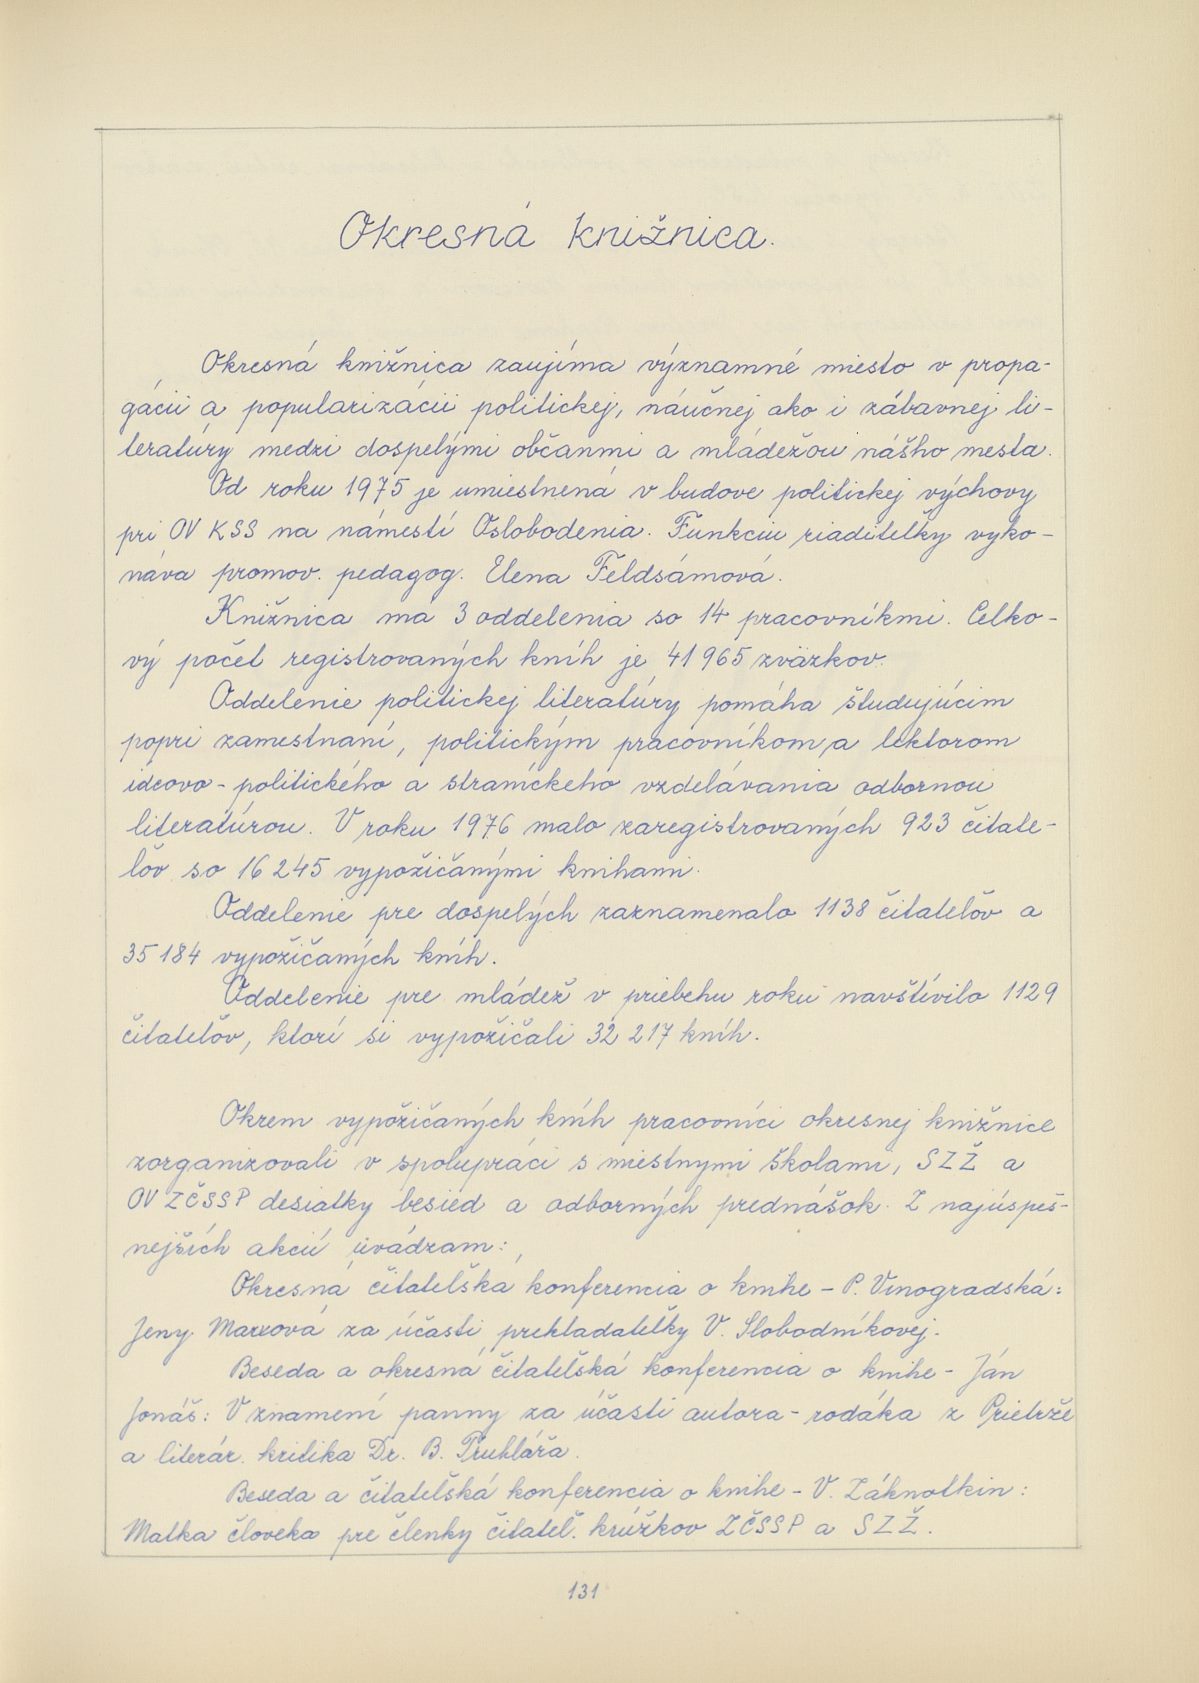 Okresná knižnica.
Okresná knižnica zaujíma významné miesto v propa-
gácii a popularizácii politickej, náučnej ako i zábavnej li-
teratúry medzi dospelými občanmi a mládežou nášho mesta.
Od roku 1975 je umiestnená v budove politickej výchovy
pri OV KSS na námestí Oslobodenia. Funkciu riaditeľky vyko-
náva promov. pedagog. Elena Feldsámová.
Knižnica má 3 oddelenia so 14 pracovníkmi. Celko-
vý počet registrovaných kníh je 41 965 zväzkov.
Oddelenie politickej literatúry pomáha študujúcim
popri zamestnaní, politickým pracovníkom a lektorom
ideovo-politického a straníckeho vzdelávania odbornou
literatúrou. V roku 1976 malo zaregistrovaných 923 čitate-
ľov so 16 245 vypožičanými knihami.
Oddelenie pre dospelých zaznamenalo 1138 čitateľov a
35 184 vypožičaných kníh.
Oddelenie pre mládež v priebehu roku navštívilo 1129
čitateľov, ktorí si vypožičali 32 217 kníh.
Okrem vypožičaných kníh pracovníci okresnej knižnice
zorganizovali v spolupráci s miestnymi školami, SZŽ a
OV ZČSSP desiatky besied a odborných prednášok. Z najúspeš-
nejších akcií uvádzam:
Okresná čitateľská konferencia o knihe - P. Vinogradská:
Jeny Marxová za účasti prekladateľky V. Slobodníkovej.
Beseda a okresná čitateľská konferencia o knihe - Ján
Jonáš: V znamení panny za účasti autora - rodáka z Prietrže
a literár. kritika Dr. B. Truhlářa.
Beseda a čitateľská konferencia o knihe - V. Záknotkin:
Matka človeka pre členky čitateľ. krúžkov ZČSSP a SZŽ.
131